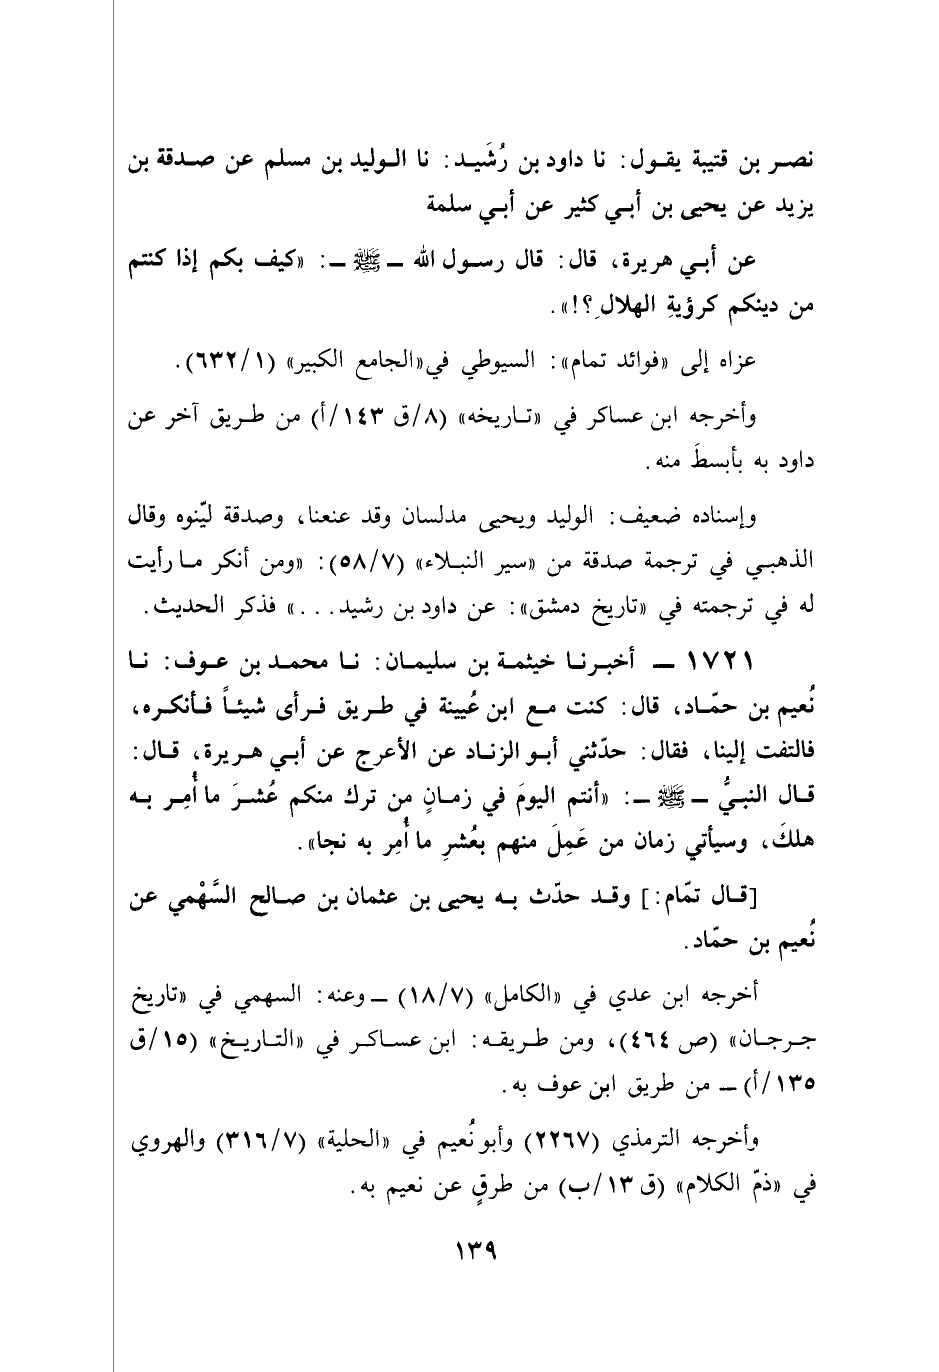 نصر بن قتيبة يقول: نا داود بن رُشَيد: نا الوليد بن مسلم عن صدقة بن
يزيد عن يحيى بن أبي كثير عن أبي سلمة
عن أبي هريرة، قال: قال رسول الله ـ ﷺ ـ: «كيف بكم إذا كنتم
من دينكم كرؤيةِ الهلالِ؟!».
عزاه إلى «فوائد تمام»: السيوطي في«الجامع الكبير» (١/٦٣٢).
وأخرجه ابن عساكر في «تاريخه» (٨/ق ١٤٣/أ) من طريق آخر عن
داود به بأبسطَ منه.
وإسناده ضعيف: الوليد ويحيى مدلسان وقد عنعنا، وصدقة ليّنوه وقال
الذهبي في ترجمة صدقة من «سير النبلاء» (٧/٥٨): «ومن أنكر ما رأيت
له في ترجمته في «تاريخ دمشق»: عن داود بن رشيد...» فذكر الحديث.
١٧٢١ ـ أخبرنا خيثمة بن سليمان: نا محمد بن عوف: نا
نُعيم بن حمّاد، قال: كنت مع ابن عُيينة في طريق فرأى شيئاً فأنكره،
فالتفت إلينا، فقال: حدّثني أبو الزناد عن الأعرج عن أبي هريرة، قال:
قال النبيُّ ـ ﷺ ـ: «أنتم اليومَ في زمانٍ من ترك منكم عُشرَ ما أُمِر به
هلكَ، وسيأتي زمان من عَمِلَ منهم بعُشرِ ما أُمِر به نجا».
[قال تمّام:] وقد حدّث به يحيى بن عثمان بن صالح السَّهْمي عن
نُعيم بن حمّاد.
أخرجه ابن عدي في «الكامل» (٧/١٨) ـ وعنه: السهمي في «تاريخ
جرجان» (ص ٤٦٤)، ومن طريقه: ابن عساكر في «التاريخ» (١٥/ق
١٣٥/أ) ـ من طريق ابن عوف به.
وأخرجه الترمذي (٢٢٦٧) وأبو نُعيم في «الحلية» (٧/٣١٦) والهروي
في «ذمّ الكلام» (ق ١٣/ب) من طرقٍ عن نعيم به.
١٣٩